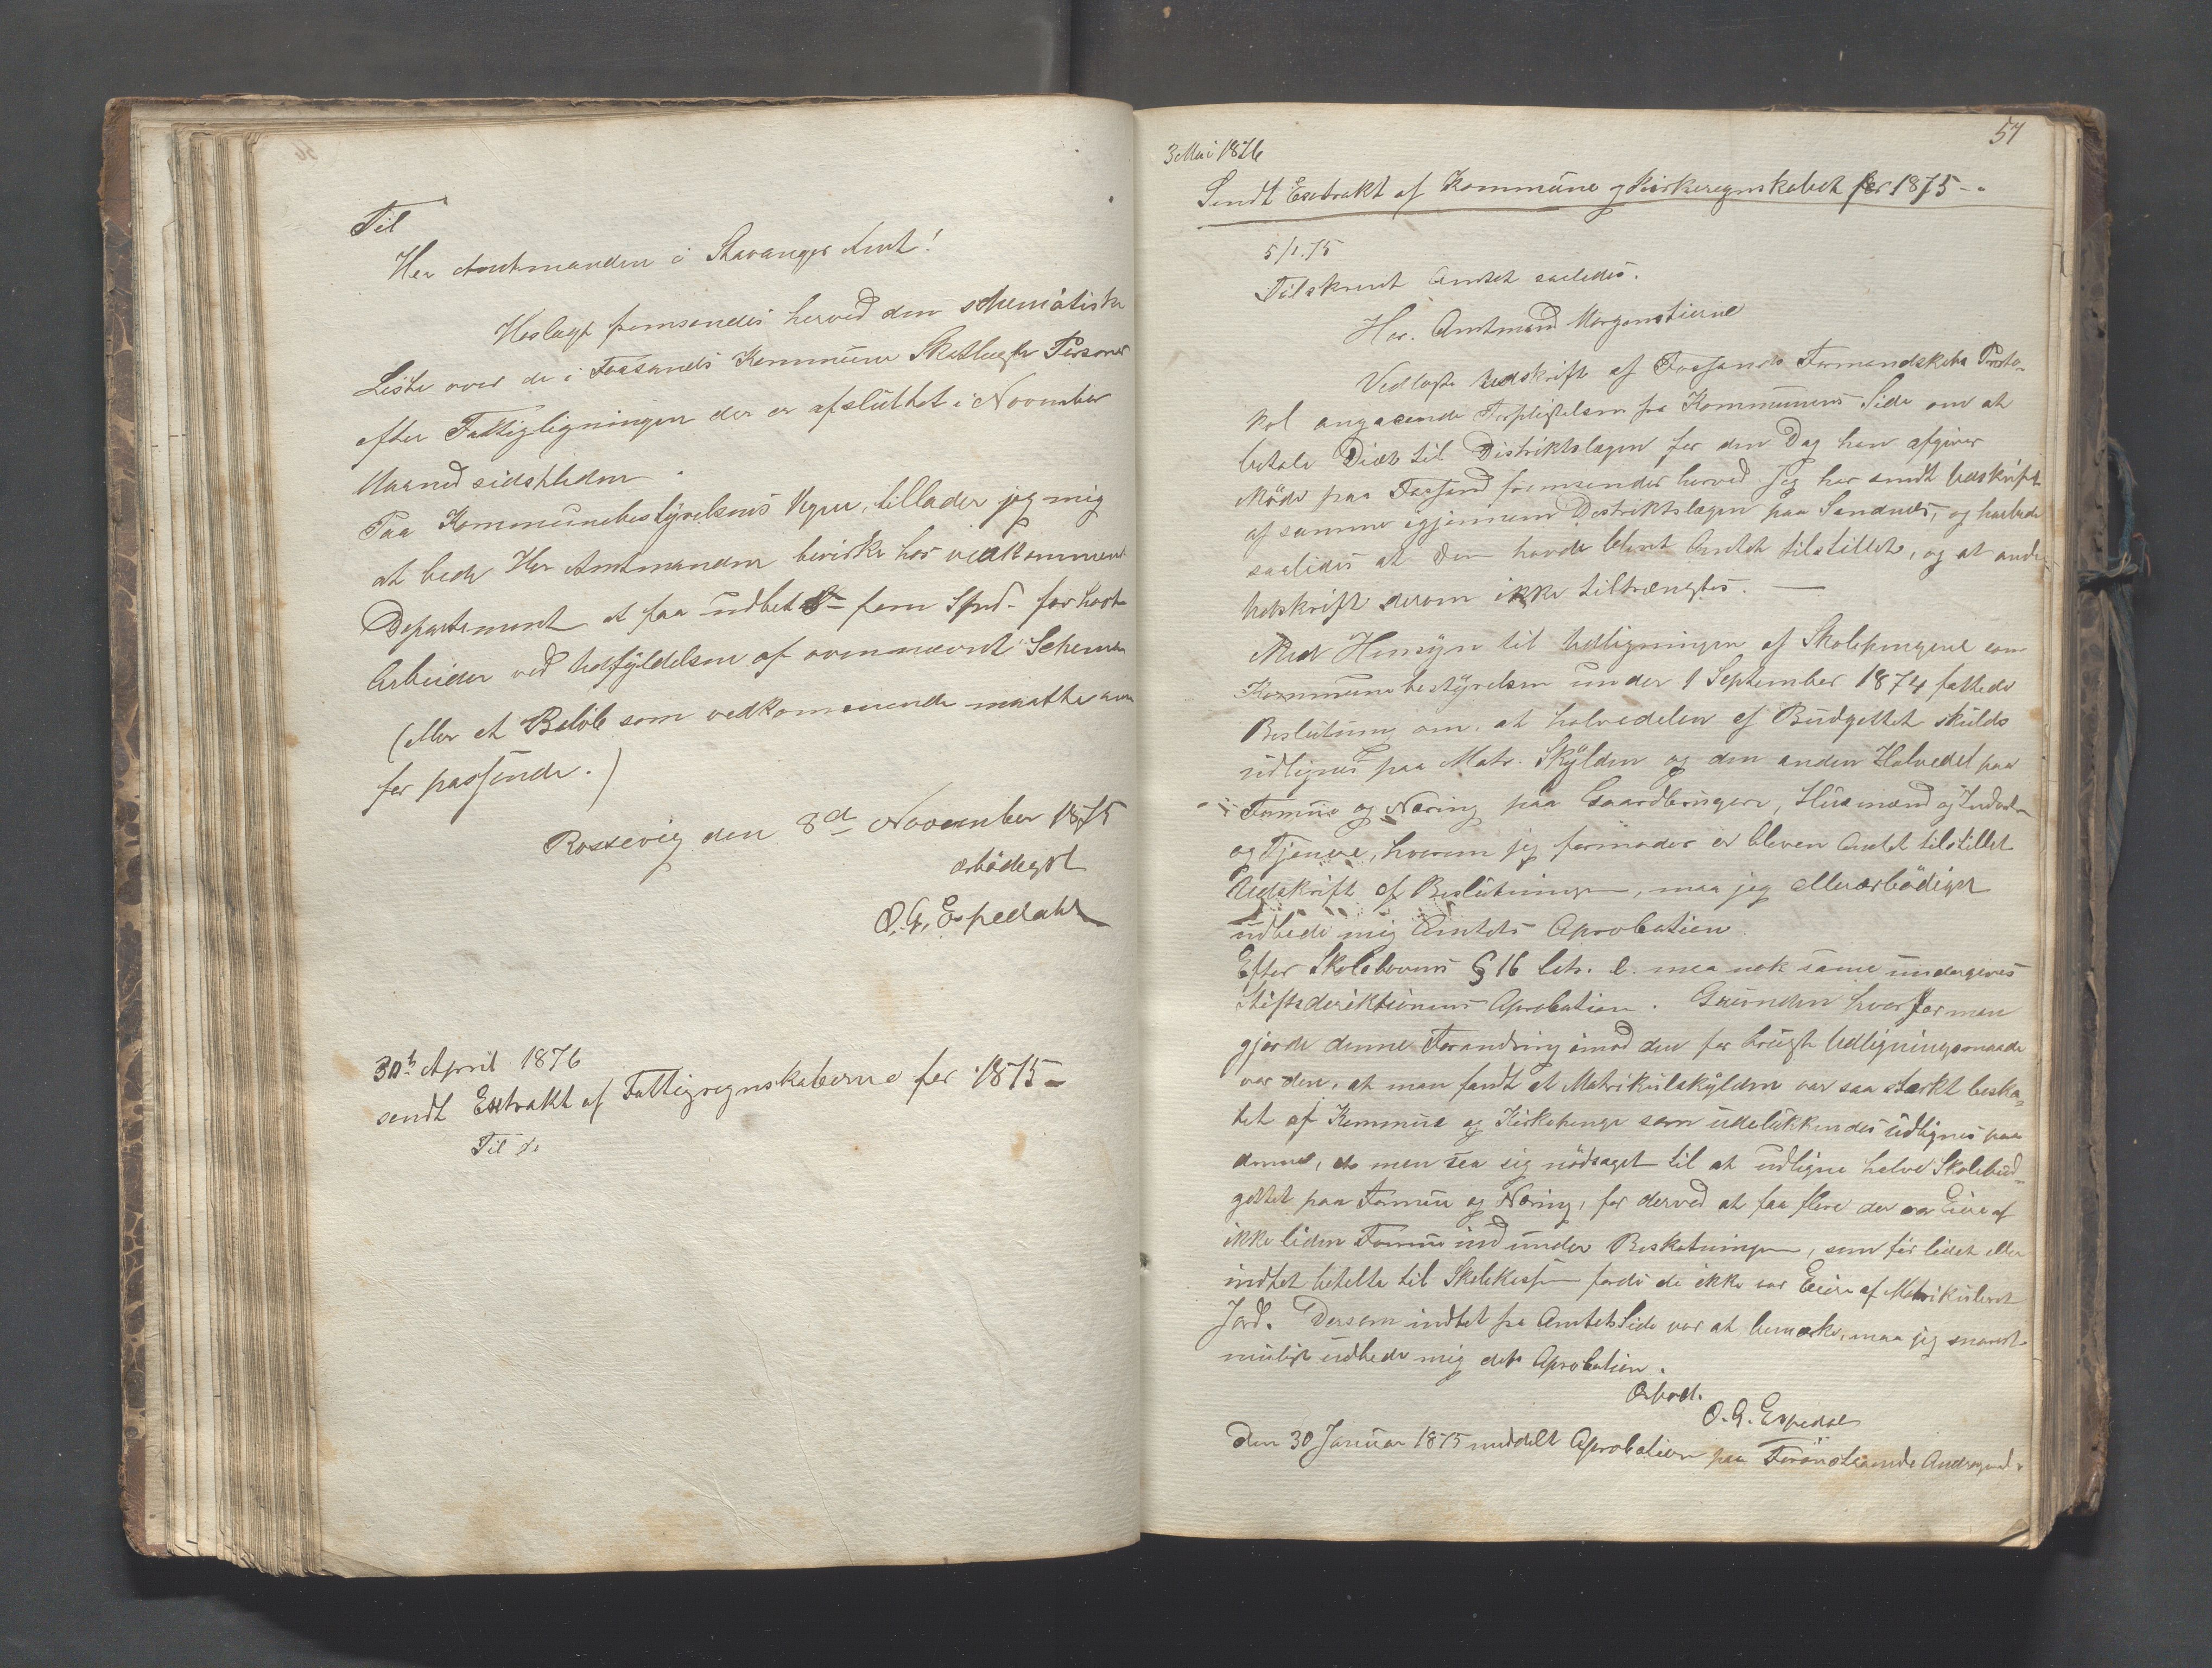 Til
Her Amtmanden i Stavanger Amt!
Hoslagt fremsendes herved den schematiske
Liste over de i Fossands Kommune Skatlagte Personer
efter Fattigligningen der er afsluttet i November
Maaned sidstleden.
Paa Kommunebestyrelsens Vegne, tillader jeg mig
at bede Her Amtmanden bevirke hos vedkommende
Departement at faa udbetalt fem Spd. for havt
Arbeide ved Udfyldelsen af ovennævnt Schema
(eller et Beløb som vedkommende maatte anse
for passende.)
Rossevig den 8d November 1875
ærbødigst
O. G. Espedahl
30t April 1876
sendt Extrakt af Fattigregnskaberne for 1875 –
Til
57
3 Mai 1876
Sendt Extrakt af Kommune og Kirkeregnskabet for 1875 –
5/1.75
Tilskrevet Amtet saaledes.
Her. Amtmand Morgenstierne
Vedlagte Udskrift af Fossands Formandskabs Proto-
kol angaaende Forpligtelsen fra Kommunens Side om at
betale Diæt til Distriktslægen for den Dag han afgiver
Møde paa Fossand fremsendes herved. Jeg har sendt Udskrift
af samme igjennem Distriktslægen paa Sandnæs, og
saaledes at den havde blevt Amtet tilstillet, og at anden
Udskrift derom ikke tiltrængtes. —
Med Hensyn til Udligningen af Skolepengene som
Kommunebestyrelsen under 1 September 1874 fattede
Beslutning om, at halvedelen af Budgettet skulde
udlignes paa Matr. Skylden og den anden Halvedel paa
Formue og Næring paa Gaardbrugere, Husmænd og Inderster
og Tjenere, hvorom jeg formoder er bleven Amtet tilstillet
Udskrift af Beslutningen, maa jeg allerærbødigst
udbede mig Amtets Aprobation.
Efter Skolelovens § 16 Litr. e. maa nok same undergives
Stiftsdirektionens Aprobation. Grunden hvorfor man
gjorde denne Forandring imod den før brugte Udligningsmaade
var den, at man fandt at Matrikulskylden var saa stærkt beska-
tet af Kommune og Kirkepenge som udelukkendes udlignes paa
denne, at man saa sig nødsaget til at udligne halve Skolebud-
gettet paa Formue og Næring, for derved at faa flere der var Eiere af
ikke liden Formue ind under Beskatningen, som før lidet eller
indtet betalte til Skolekassen fordi de ikke var Eiere af Matrikuleret
Jord. Dersom indtet fra Amtets Side var at bemærke, maa jeg snarest
muligst udbede mig dets Aprobation.
Ærbød.
O. G. Espedal
Den 30 Januar 1875 meddelt Aprobation paa Foranstaaende Andragende